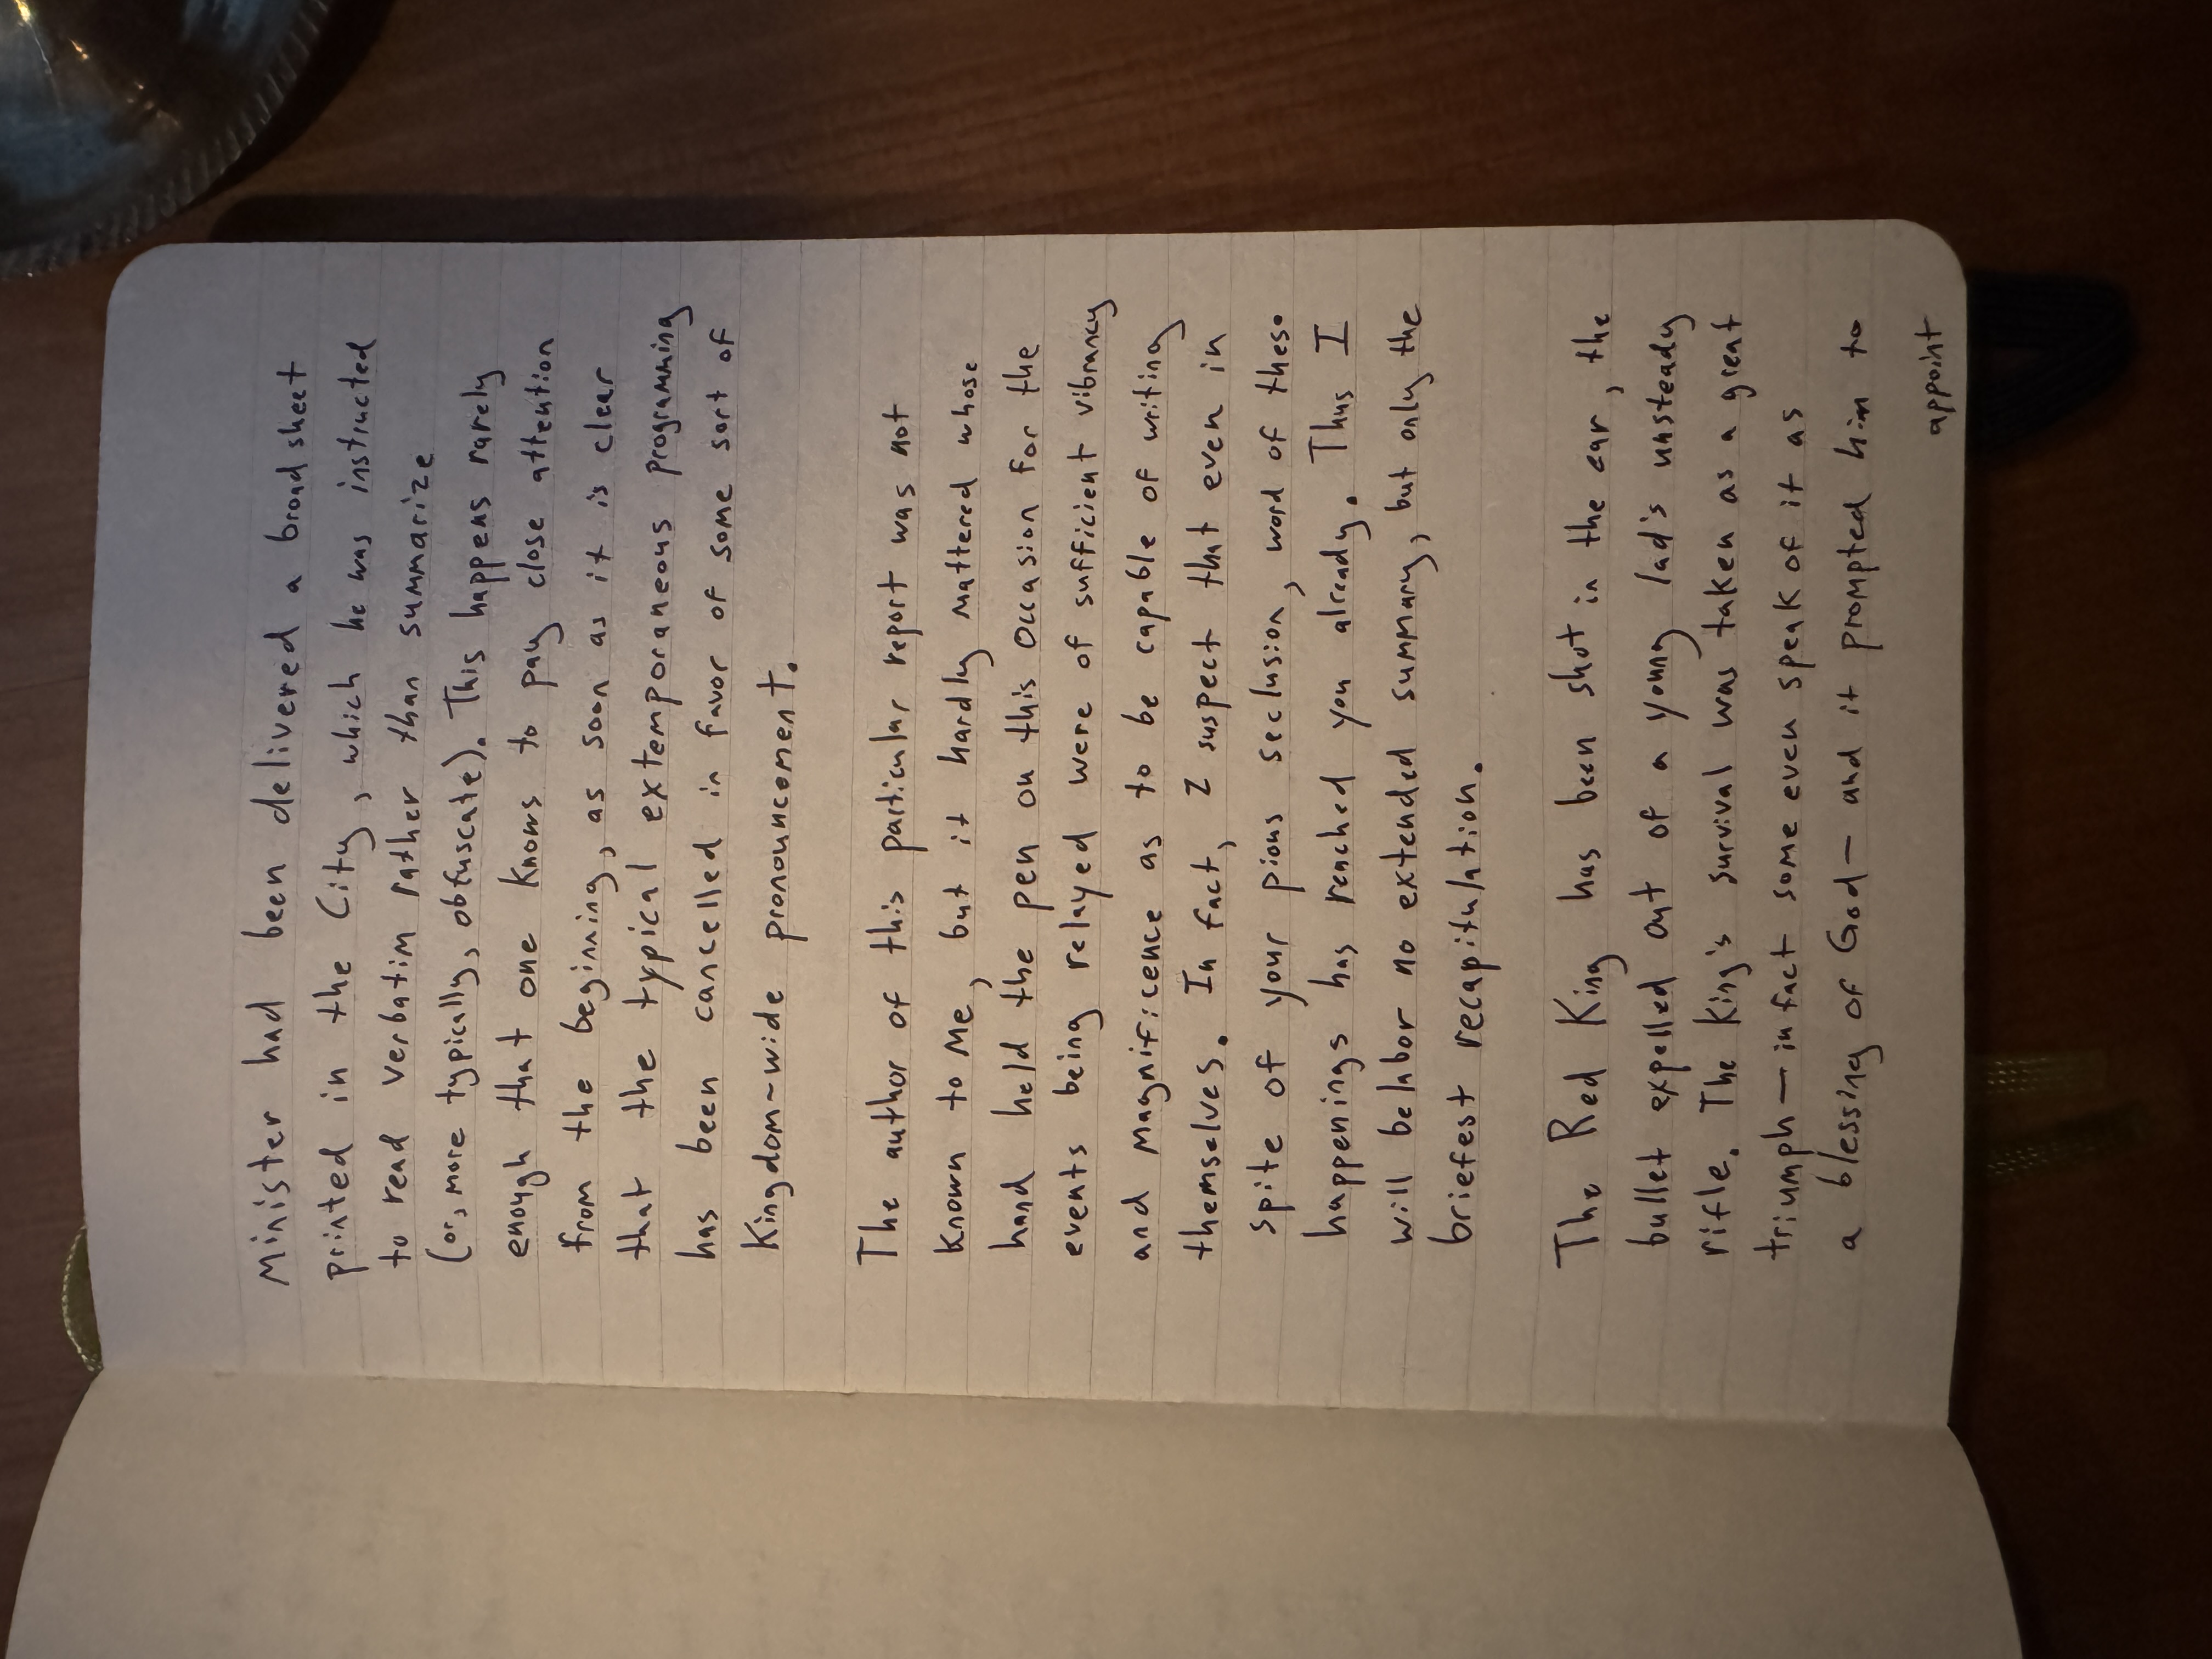 Minister had been delivered a broadsheet
printed in the City, which he was instructed
to read verbatim rather than summarize
(or, more typically, obfuscate). This happens rarely
enough that one knows to pay close attention
from the beginning, as soon as it is clear
that the typical extemporaneous programming
has been cancelled in favor of some sort of
Kingdom-wide pronouncement.
The author of this particular report was not
known to me, but it hardly mattered whose
hand held the pen on this occasion for the
events being relayed were of sufficient vibrancy
and magnificence as to be capable of writing
themselves. In fact, I suspect that even in
spite of your pious seclusion, word of these
happenings has reached you already. Thus I
will belabor no extended summary, but only the
briefest recapitulation.
The Red King has been shot in the ear, the
bullet expelled out of a young lad's unsteady
rifle. The King's survival was taken as a great
triumph — in fact some even speak of it as
a blessing of God — and it prompted him to
appoint